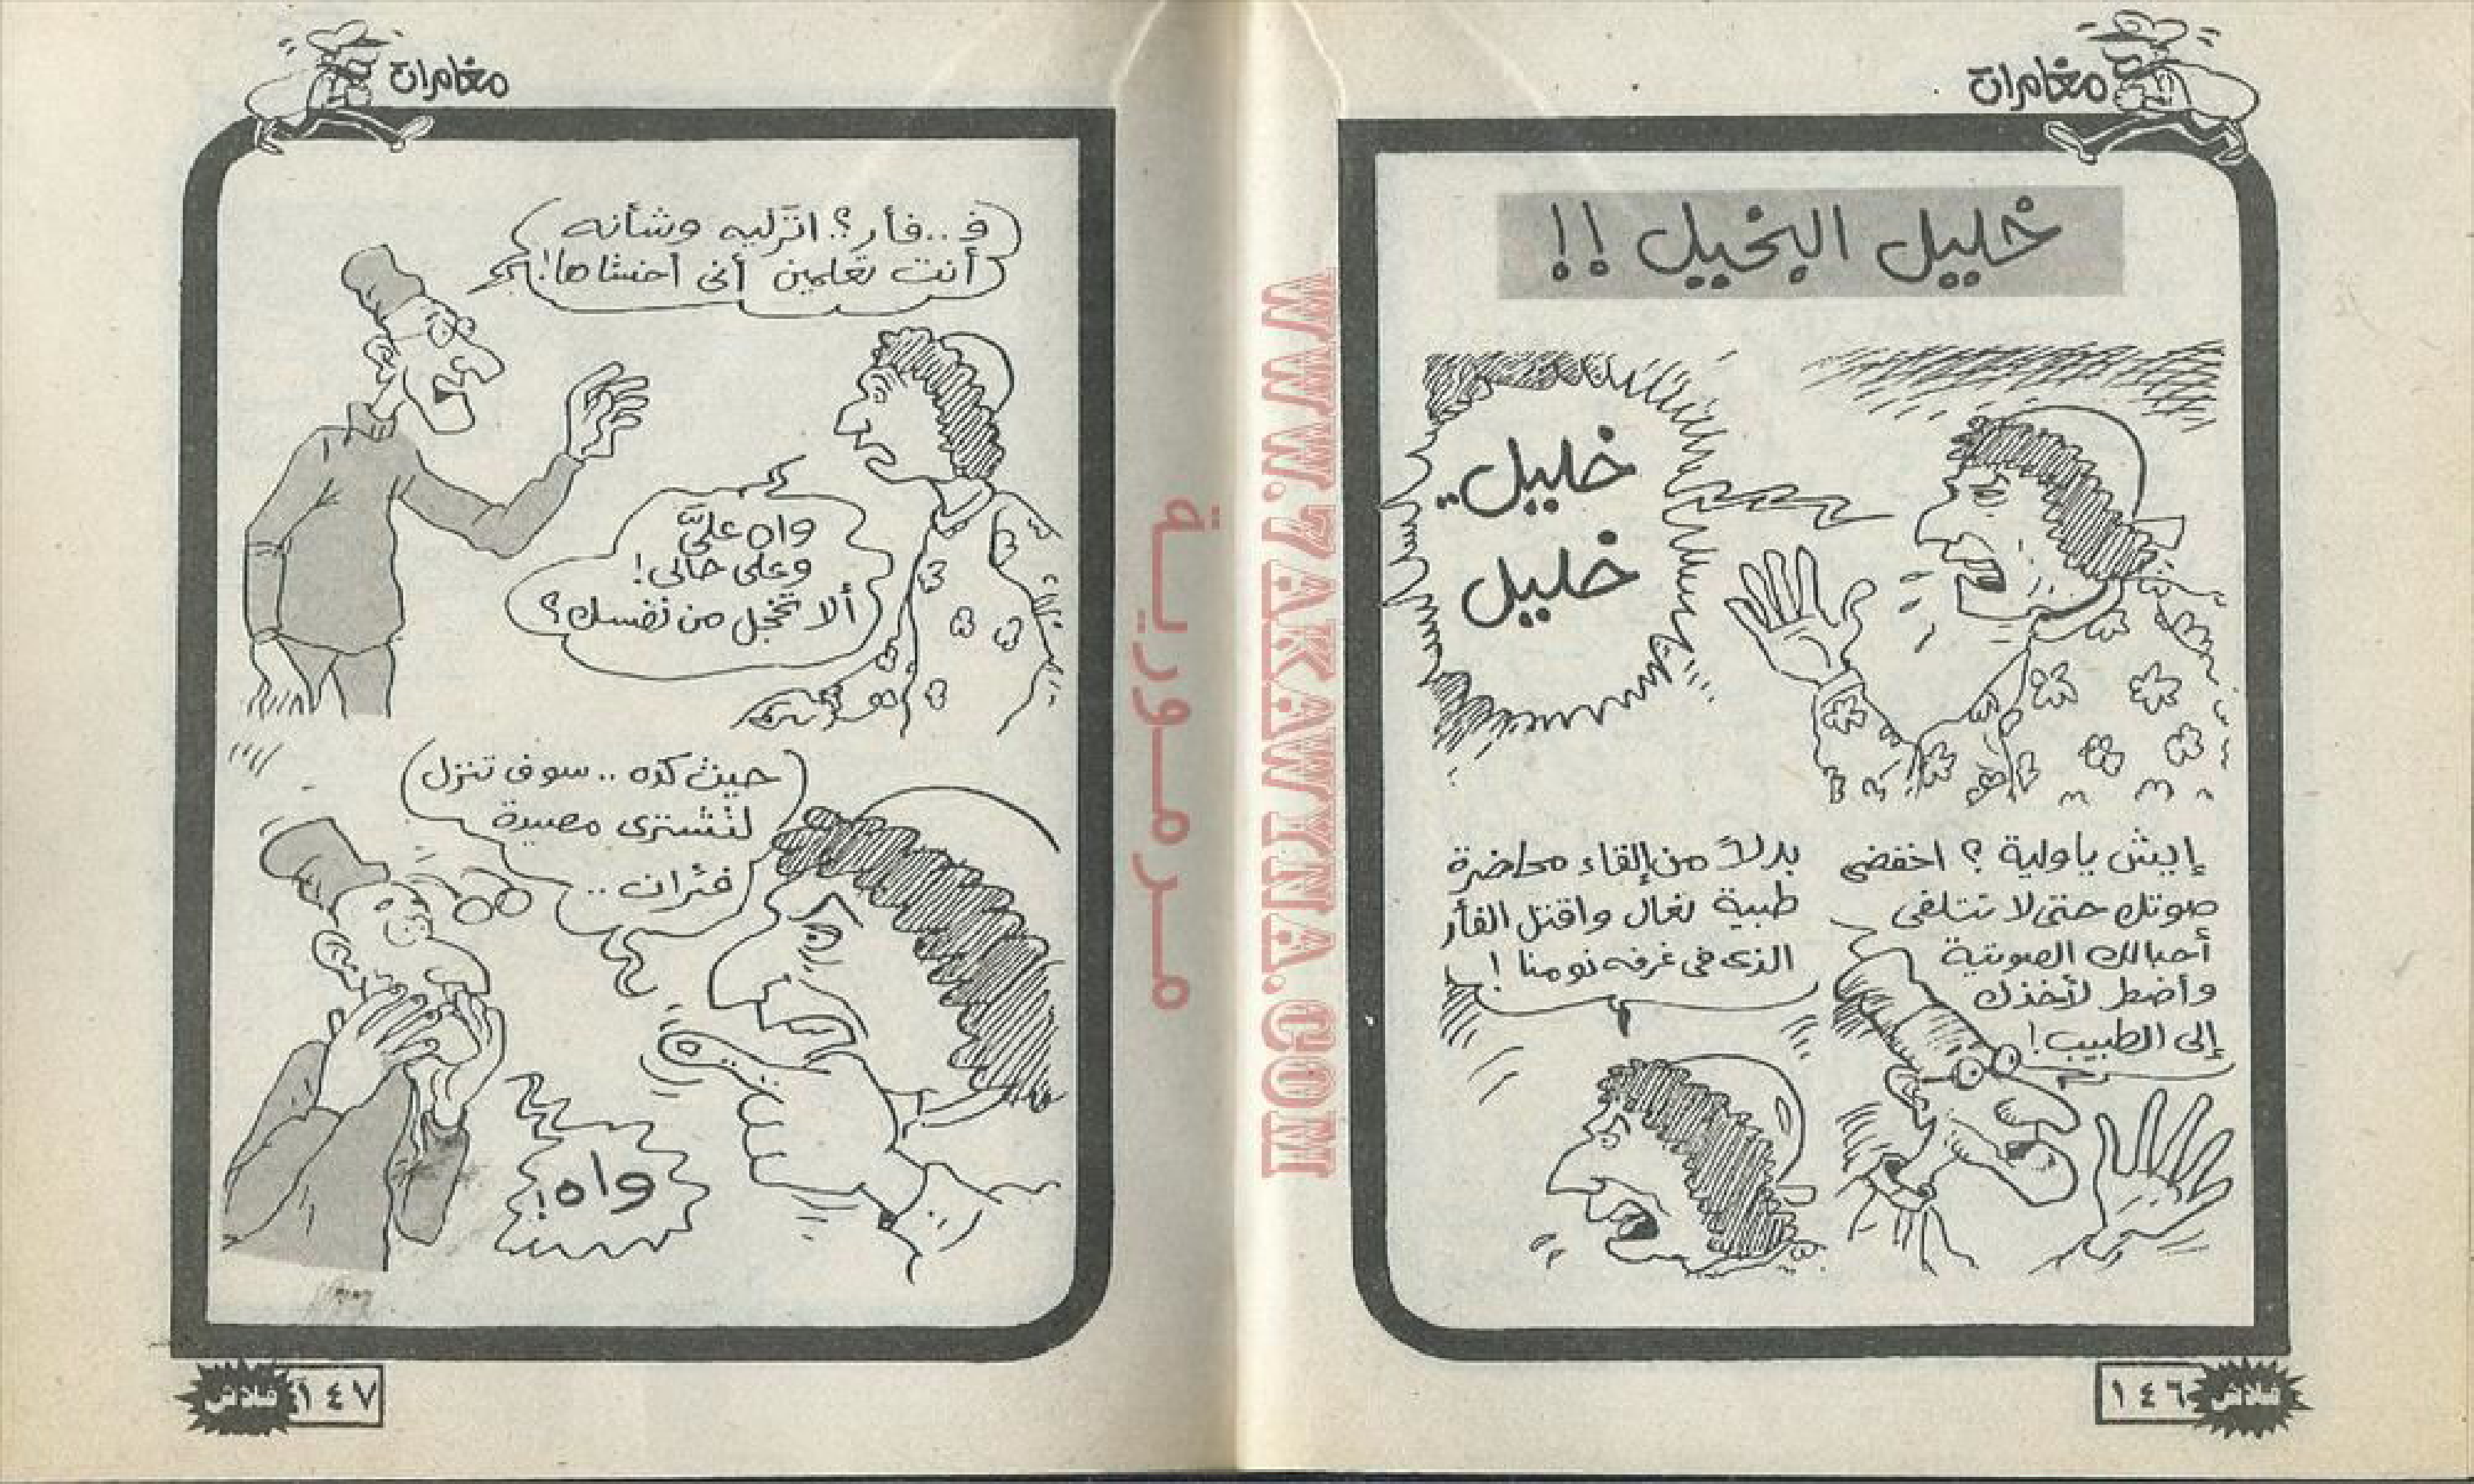 مغامرات
خليل البخيل !!
خليل..
خليل
إيش ياولية ؟ اخفضى
صوتك حتى لا تتلفى
أحبالك الصوتية
وأضطر لأخذك
إلى الطبيب!
بدلاً من إلقاء محاضرة
طبية تعال واقتل الفأر
الذى فى غرفه نومنا !
١٤٦
فلاش
مغامرات
ف..فأر؟ اتركيه وشأنه
أنت تعلمين أنى أخشاها!
واه علىَّ
وعلى حالى!
ألا تخجل من نفسك؟
حيث كده .. سوف تنزل
لتشترى مصيدة
فئران ..
واه!
١٤٧
فلاش
مرمورية
WWW.7AKAWINA.COM